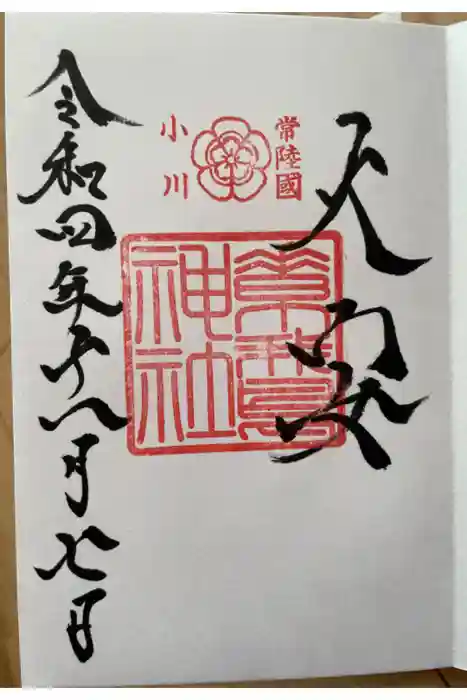 天安
常陸國
小川
素鵞
神社
令和四年八月七日